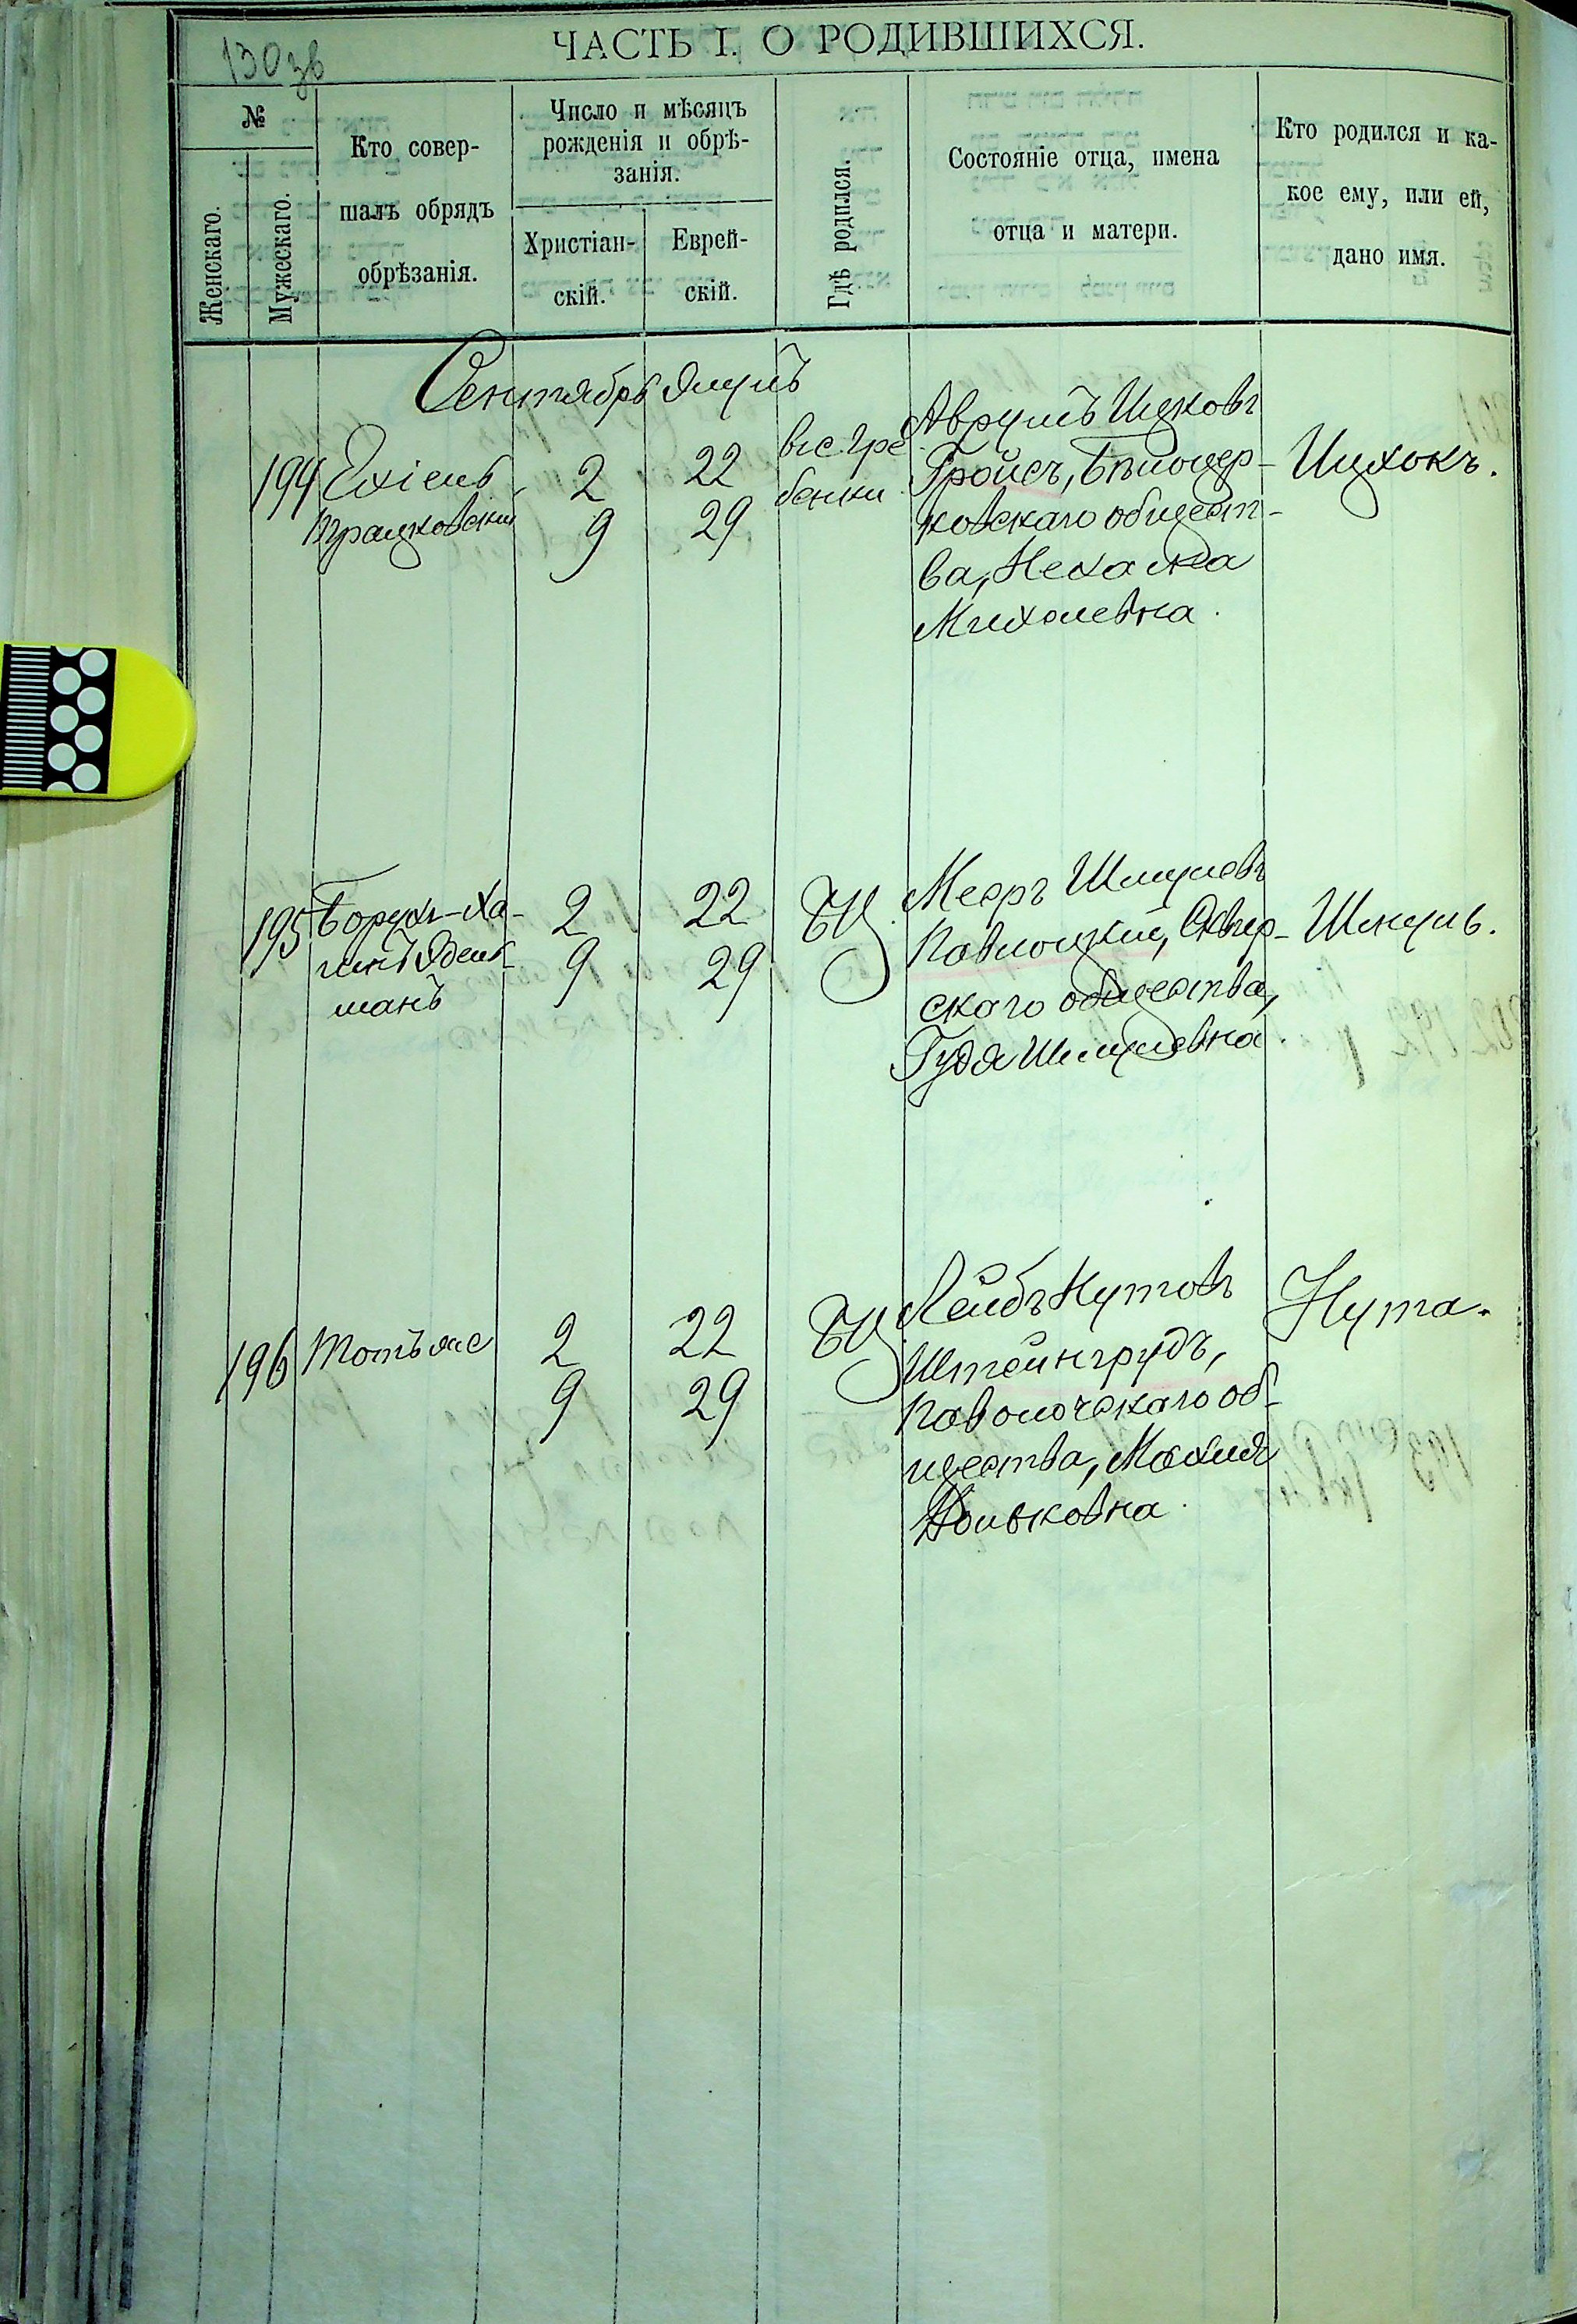 130 зв
ЧАСТЬ I. О РОДИВШИХСЯ.
№
Женскаго.
Мужескаго.
Кто совер-
шалъ обрядъ
обрѣзанія.
Число и мѣсяцъ
рожденія и обрѣ-
занія.
Христіан-
скій.
Еврей-
скій.
Гдѣ родился.
Состояніе отца, имена
отца и матери.
Кто родился и ка-
кое ему, или ей,
дано имя.
Сентябрь Элулъ
194
Ехіель
2
9
22
29
въ с. Гре
бенки
Аврумъ Ицковъ
Гройсъ, Бѣлоцер-
ковскаго общест-
ва, Нехама
Михелевна.
Ицхокъ.
195
Борухъ-Ха-
имъ Эдель-
манъ
2
9
22
29
БЦ
Мееръ Шмулевъ
Паволоцкій, Сквир-
скаго общества,
Гудя Шмулевна.
Шмуль.
196
Тотъ же
2
9
22
29
БЦ
Лейбъ Нутовъ
Штейнгрудъ,
Паволочскаго об-
щества, Махля
Волковна.
Нута.